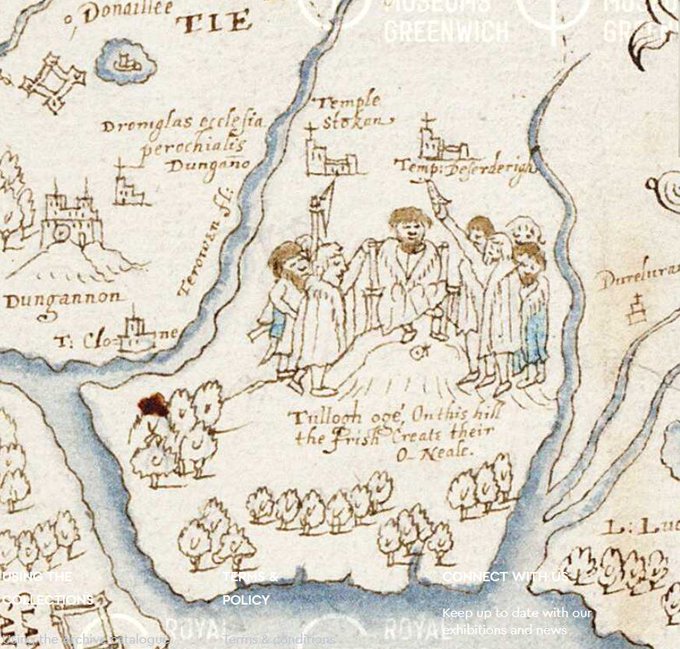 Donaillee
TIE
MUSEUMS
GREENWICH
Temple
Stokan
Dromglas ecclesia
perochialis
Dungano
Temp: Deserderigh
Terowen fl:
Dungannon
T: Clo ne
Tullogh oge, On this hill
the Irish Create their
O-Neale.
USING THE
COLLECTIONS
TERMS &
POLICY
CONNECT WITH US
Keep up to date with our
exhibitions and news
Using the archive catalogue
Terms & conditions
ROYAL
ROYAL